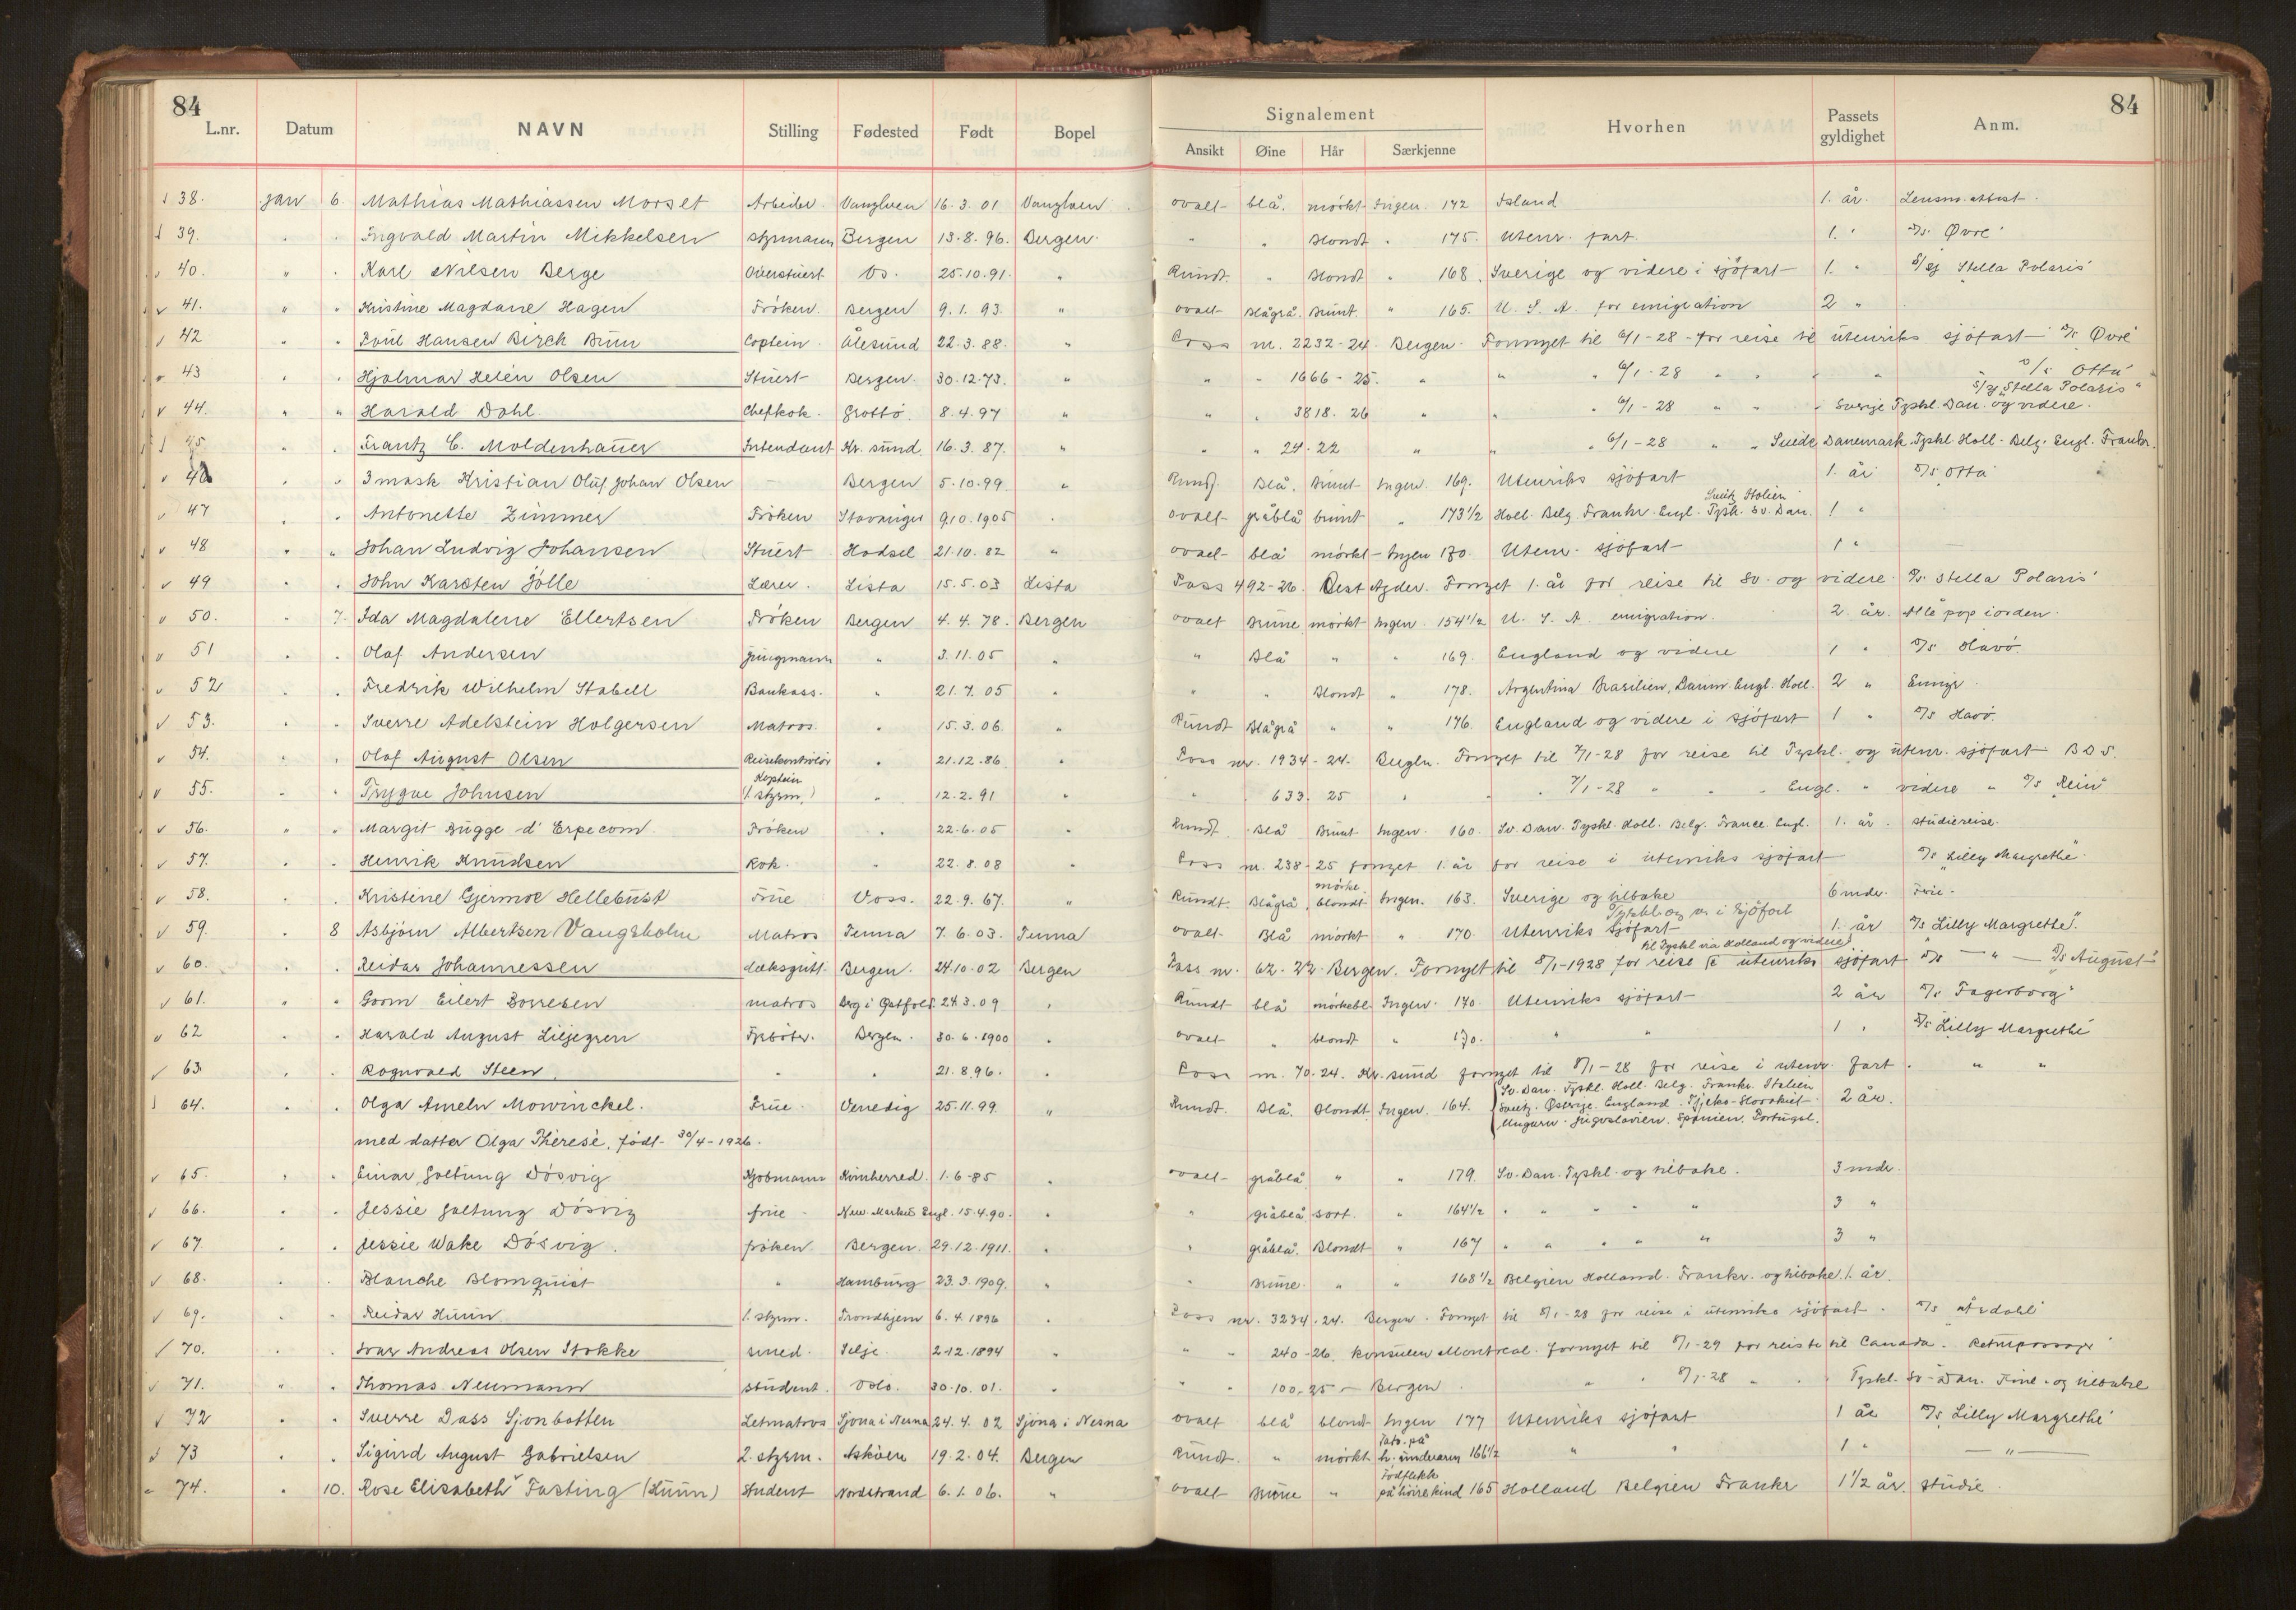 84
84
L.nr. Datum NAVN Stilling Fødested Født Bopel Signalement Hvorhen Passets gyldighet Anm.
Ansikt Øine Hår Særkjenne
38. Jan 6. Mathias Mathiassen Morset Arbeider. Vanylven 16.3.01 Vanylven. ovalt blå. mörkt Ingen. 172 Island 1. år. Lensm. attest.
39. " " Ingvald Martin Mikkelsen styrmann Bergen 13.8.96. Bergen. " " Blondt " 175. Utenr. fart. 1. " D/S. Øvre"
40. " " Karl Nilsen Berge Överstuert Os. 25.10.91. " Rundt. " Blondt " 168. Sverige og videre i sjöfart 1. " Stella Polaris"
41. " " Kristine Magdane Hagen Fröken. Bergen 9.1.93. " ovalt Blågrå. Brunt " 165. U.S.A. for emigration 2 "
42 " " Poul Hansen Birch Bruu Captein. Ålesund 22.3.88. " Pass nr. 2232-24. Bergen. Fornyet til 6/1-28 - for reise til utenriks sjöfart D/S Øvre"
43 " " Hjalmar Helén Olsen Stuert Bergen. 30.12.73. " " " 1666-25. " " " 6/1-28 " " " " D/S Otta"
44. " " Harald Dahl Chefkok. Grottö. 8.4.97 " " " 3818.26 " " " 6/1-28 " " " Sverje Tyskl. Dan. og videre. Stella Polaris"
45 " " Frantz C. Moldenhauer Intendant Kr. sund. 16.3.87. " " " 24.22 " " " 6/1-28 " " Suede Danemark. Tyskl. Holl. Belg. Engl. Frankr.
46 " " 3 mask Kristian Oluf Johan Olsen — Bergen 5.10.99. " Rund. Blå. Brunt Ingen. 169. Utenriks sjöfart 1. år D/S Otta"
47 " " Antonette Zimmer Fröken Stavanger 9.10.1905 " ovalt gråblå brunt " 173½ Holl. Belg. Frankr. Engl. Tysk. Sv. Dan. Sveitz Italien 1 "
48 " " Johan Ludvig Johansen Stuert Hadsel 21.10.82 " ovalt blå mörkt Ingen 170. Utenr. sjöfart 1 "
49 " " John Karsten Jölle Lærer. Lista 15.5.03 Lista Pass 492-26. Vest Agder. Fornyet 1. år for reise til Sv. og videre. D/S. Stella Polaris"
50. " 7. Ida Magdalene Ellertsen Fröken Bergen 4.4.78. Bergen ovalt Brune mörkt Ingen. 154½ U.S.A. emigration. 2. år. Alle pap i orden.
51 " " Olaf Andersen Jungmann " 3.11.05 " " Blå " " 169. England og videre 1 " D/S Havö.
52 " " Fredrik Wilhelm Stabell Bankass. " 21.7.05 " " " Blondt " 178. Argentina Brasilien, Danm. Engl. Holl. 2 " Emigr.
53. " " Sverre Adelstein Holgersen Matros. " 15.3.06. " Rundt Blågrå " " 176. England og videre i sjöfart 1 " D/S Havö.
54. " " Olaf August Olsen Reisekontrolör " 21.12.86. " Pass nr. 1934-24. Bergen. Fornyet til 7/1-28 for reise til Tyskl. og utenr. sjöfart B D S.
55. " " Trygve Johnsen Kaptein (1. styrm.) " 12.2.91 " " " 633.25 " " " 7/1-28 " " " Engl. " videre " D/S Rein"
56. " " Margit Bugge d'Erpecom. Fröken " 22.6.05 " Rundt. Blå Brunt Ingen. 160. Sv. Dan. Tyskl. Holl. Belg. France. Engl. 1. år. studiereise.
57. " " Henrik Knudsen Kok. " 22.8.08 Pass nr. 238-25 fornyet 1. år for reise i utenriks sjöfart D/S "Lilly Margrethe".
58. " " Kristine Gjermoe Hellebust Frue Voss. 22.9.67. " Rundt. Blågrå mörke. blondt Ingen. 163. Sverige og tilbake 6 mdr. Frie.
59. " 8 Asbjörn Albertsen Vangsholm Matros Tenna 7.6.03. Tenna ovalt. Blå mörkt " 170. Utenriks sjöfart Tyskl og v. i Sjöfart 1. år D/S Lilly Margrethe".
60. " " Reidar Johannessen dæksgutt. Bergen. 24.10.02 Bergen Pass nr. 62.27. Bergen. Fornyet til 8/1-1928 for reise til Tyskl via Holland og videre) utenriks sjöfart D/S — " — D/S August"
61. " " Gorm Eilert Borresen matros Berg i Østfold. 24.3.09 " Rundt blå mörkebl. Ingen. 170. Utenriks sjöfart 2 år D/S Fagerborg"
62 " " Harald August Liljegren Fyrböter. Bergen. 30.6.1900 " ovalt " blondt " 170. " " 1 " D/S Lilly Margrethe
63 " " Rognvald Steen. " " 21.8.96. " Pass nr. 70-24. Kr. sund fornyet til 8/1-28 for reise i utenr. fart. " "
64. " " Olga Ameln Mowinckel. Frue. Venedig 25.11.99. " Rundt. Blå. Blondt Ingen. 164. Sv. Dan. Tyskl. Holl. Belg. Frankr. Italien Sveitz. Østerige. England. Tjeko-Slovakiet. Ungarn. Jugoslavien. Spanien. Portugal. 2 år.
med datter Olga Therese, födt 30/4-1926.
65. " " Einar Galtung Dösvig Kjøbmann Kvinherred. 1.6.85 " ovalt gråblå " " 179. Sv. Dan. Tyskl. og tilbake. 3 mdr.
66. " " Jessie Galtung Dösvig frue New-Market Engl. 15.4.90. " " gråblå sort. " 164½ " " " " " 3 "
67. " " Jessie Wake Dösvig. fröken. Bergen. 29.12.1911. " " gråblå. Blondt " 167 " " " " " 3 "
68. " " Blanche Blomquist " Hamburg 23.3.1909. " " Brune. " " 168½ Belgien Holland. Frankr. og tilbake. 1. år.
69. " " Reidar Huun 1. styrm. Trondhjem 6.4.1896 " Pass nr. 3234.24. Bergen. Fornyet til 8/1-28 for reise i utenriks sjöfart. D/S Årdahl"
70. " " Ivar Andreas Olsen Stokke smed. Selje. 2.12.1894 " " " 240-26. Konsulen Montreal. fornyet til 8/1-29 for reise til Canada.
71. " " Thomas Neumann student. Oslo. 30.10.01. " " " 100.25 - Bergen. " " 8/1-28 " " Tyskl. Sv-Dan. Finl. og tilbake
72 " " Sverre Dass Sjonbotten Letmatros Sjona i Nesna 24.4.02 Sjona i Nesna ovalt blå blondt Ingen 177 Utenriks sjöfart 1 år D/S Lilly Margrethe"
73 " " Sigurd August Gabrielsen 2. styrm. Askvoll 19.2.04. Bergen Rundt. " mörkt Tato. på h. underarm 166½ " " 1 " — " —
74. " 10. Rose Elisabeth Fasting (Huun) Student Nordstrand 6.1.06. " ovalt Brune " Födflekk på höire kind 165 Holland Belgien Frankr 1½ år. studie.